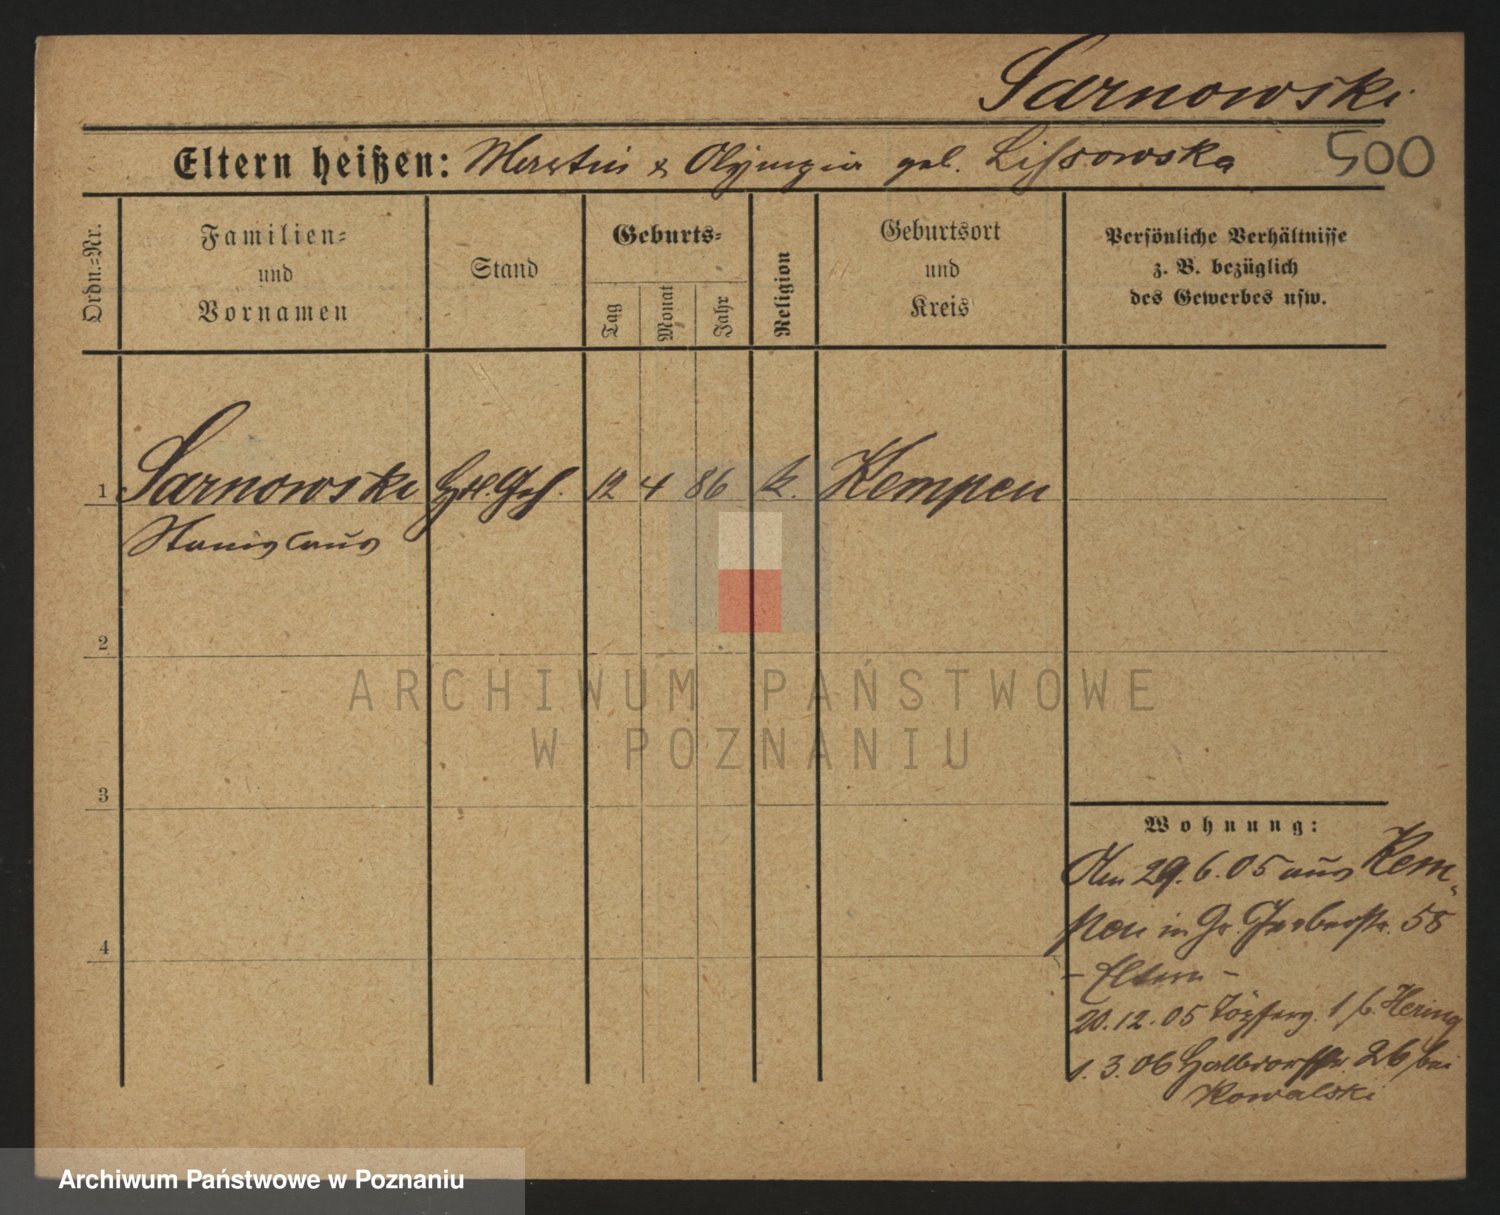 Sarnowski
Eltern heißen: Martin & Olympia geb. Lissowska
500
Ordn.-Nr.
Familien-
und
Vornamen
Stand
Geburts-
Tag
Monat
Jahr
Religion
Geburtsort
und
Kreis
Persönliche Verhältnisse
z. B. bezüglich
des Gewerbes usw.
1 Sarnowski Hdl. Geh. 12 4 86 k. Kempen
Stanislaus
2
3
4
Wohnung:
Am 29.6.05 aus Kem-
pen in Gr. Gerberstr. 58
- Eltern -
20.12.05 Töpferg. 1 b. Hering
1.3.06 Halbdorfstr. 26 bei
Kowalski
ARCHIWUM PAŃSTWOWE
W POZNANIU
Archiwum Państwowe w Poznaniu